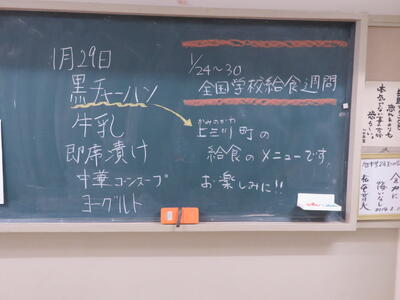 1月29日
黒チャーハン
牛乳
即席漬け
中華コーンスープ
ヨーグルト
1/24～30
全国学校給食週間
かみのかわ
上三川町の
給食のメニューです。
お楽しみに!!